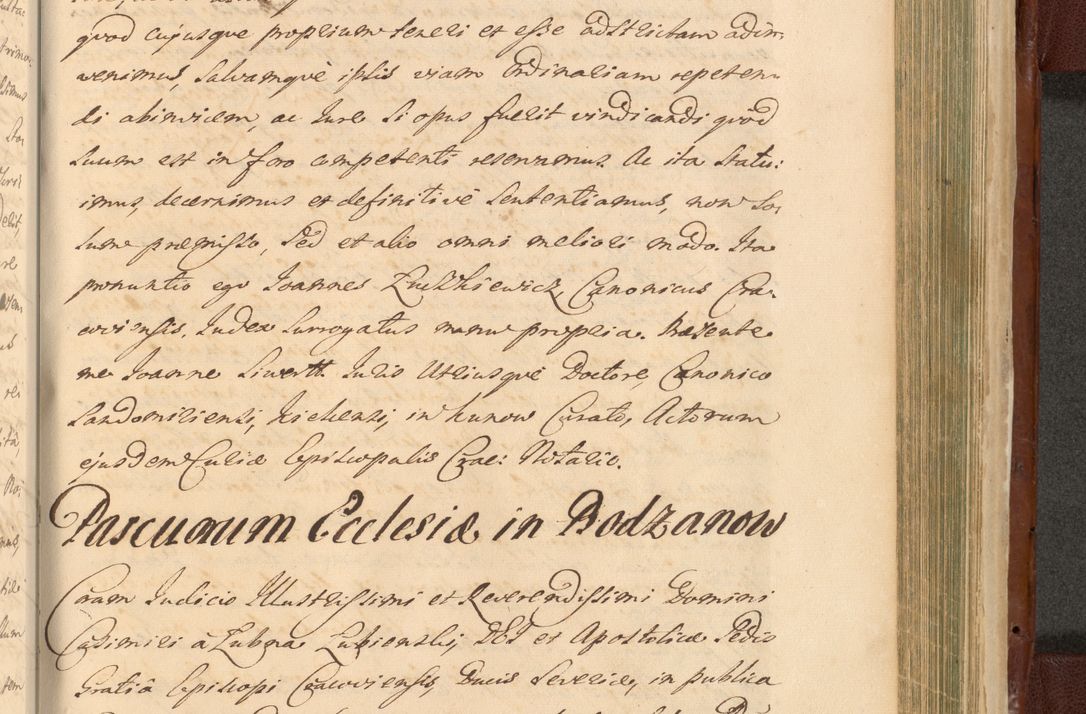 quod cujusque proprium teneri et esse adstrictam adin-
venimus, salvamqvè ipsis viam Ordinariam repeten-
di abinvicem, ac Jure si opus fuerit vindicandi qvod
suum est in foro competenti reservamus. Ac ita statu:
imus, decernimus et definitivè sententiamus, non so-
lum præmisso, sed et alio omni meliori modo. Ita
pronuntio ego Joannes Canonicus Cra-
coviensis, Judex Surrogatus manu propria. Præsente
me Joanne Siwertt Juris Utriusqvè Doctore, Canonico
Sandomiriensi, Kielensi, in Kunow Curato, Actorum
ejusdem Curiæ Episcopalis Crac: Notario.
Pascuorum Ecclesiæ in Bodzanow
Coram Judicio Illustrissimi et Reverendissimi Domini
Casimiri à Lubna Lubienski, DEI et Apostolicæ Sedis
Gratiâ Episcopi Cracoviensis, Ducis Severiæ, in publica